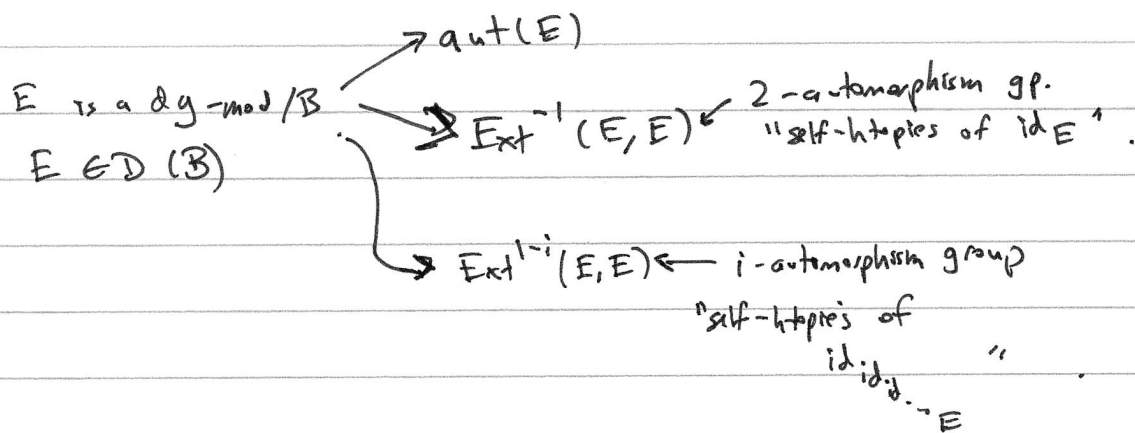 → aut(E)
E is a dg-mod/B → Ext⁻¹(E,E) ← 2-automorphism gp.
"self-htopies of id_E".
E ∈ D(B)
→ Ext^{1-i}(E,E) ← i-automorphism group
"self-htopies of
id_{id_{id_{⋱_E}}}".